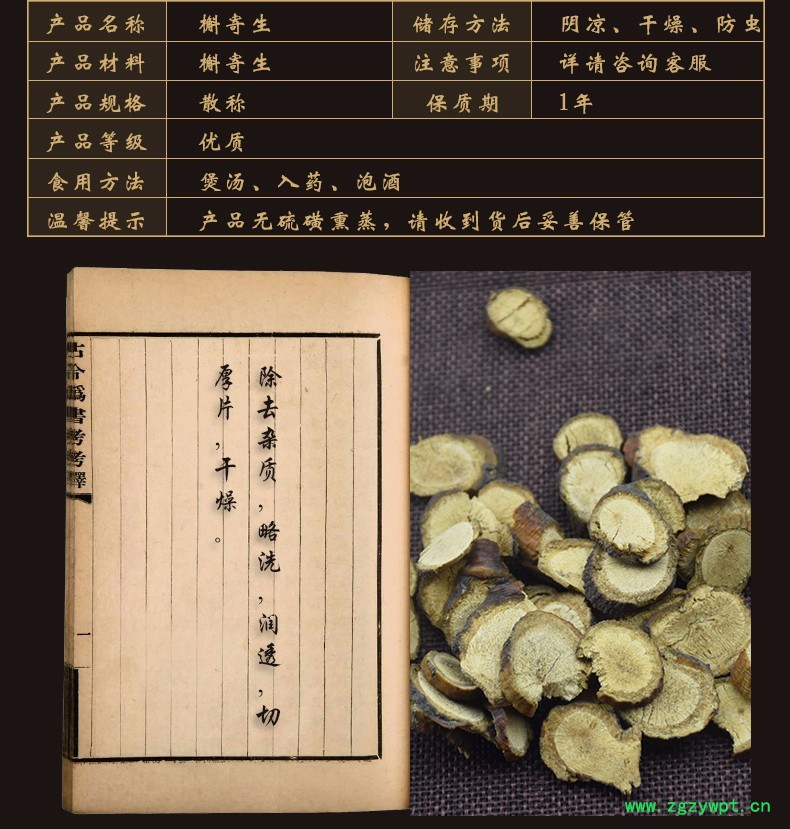 产品名称 槲寄生 储存方法 阴凉、干燥、防虫
产品材料 槲寄生 注意事项 详请咨询客服
产品规格 散称 保质期 1年
产品等级 优质
食用方法 煲汤、入药、泡酒
温馨提示 产品无硫磺熏蒸，请收到货后妥善保管
除去杂质，略洗，润透，切
厚片，干燥。
古今爲書考考釋
一
www.zgzywpt.cn